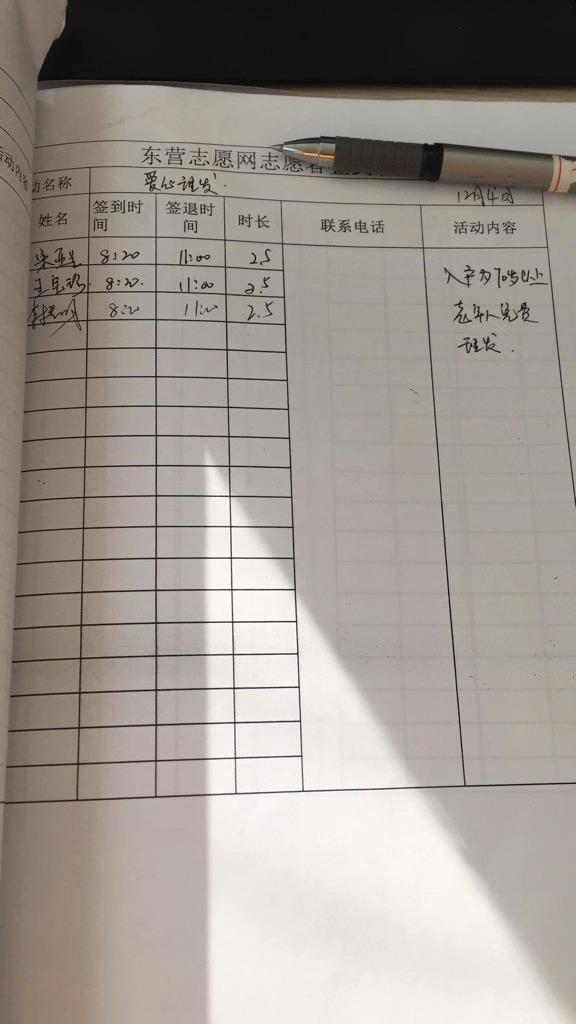 东营志愿网志愿者
动名称 爱心理发.
12月4日
姓名 签到时间 签退时间 时长 联系电话 活动内容
8:20 11:00 2.5
8:20. 11:00 2.5
8:20 11:00 2.5
入户为70岁以上
老年人免费
理发.